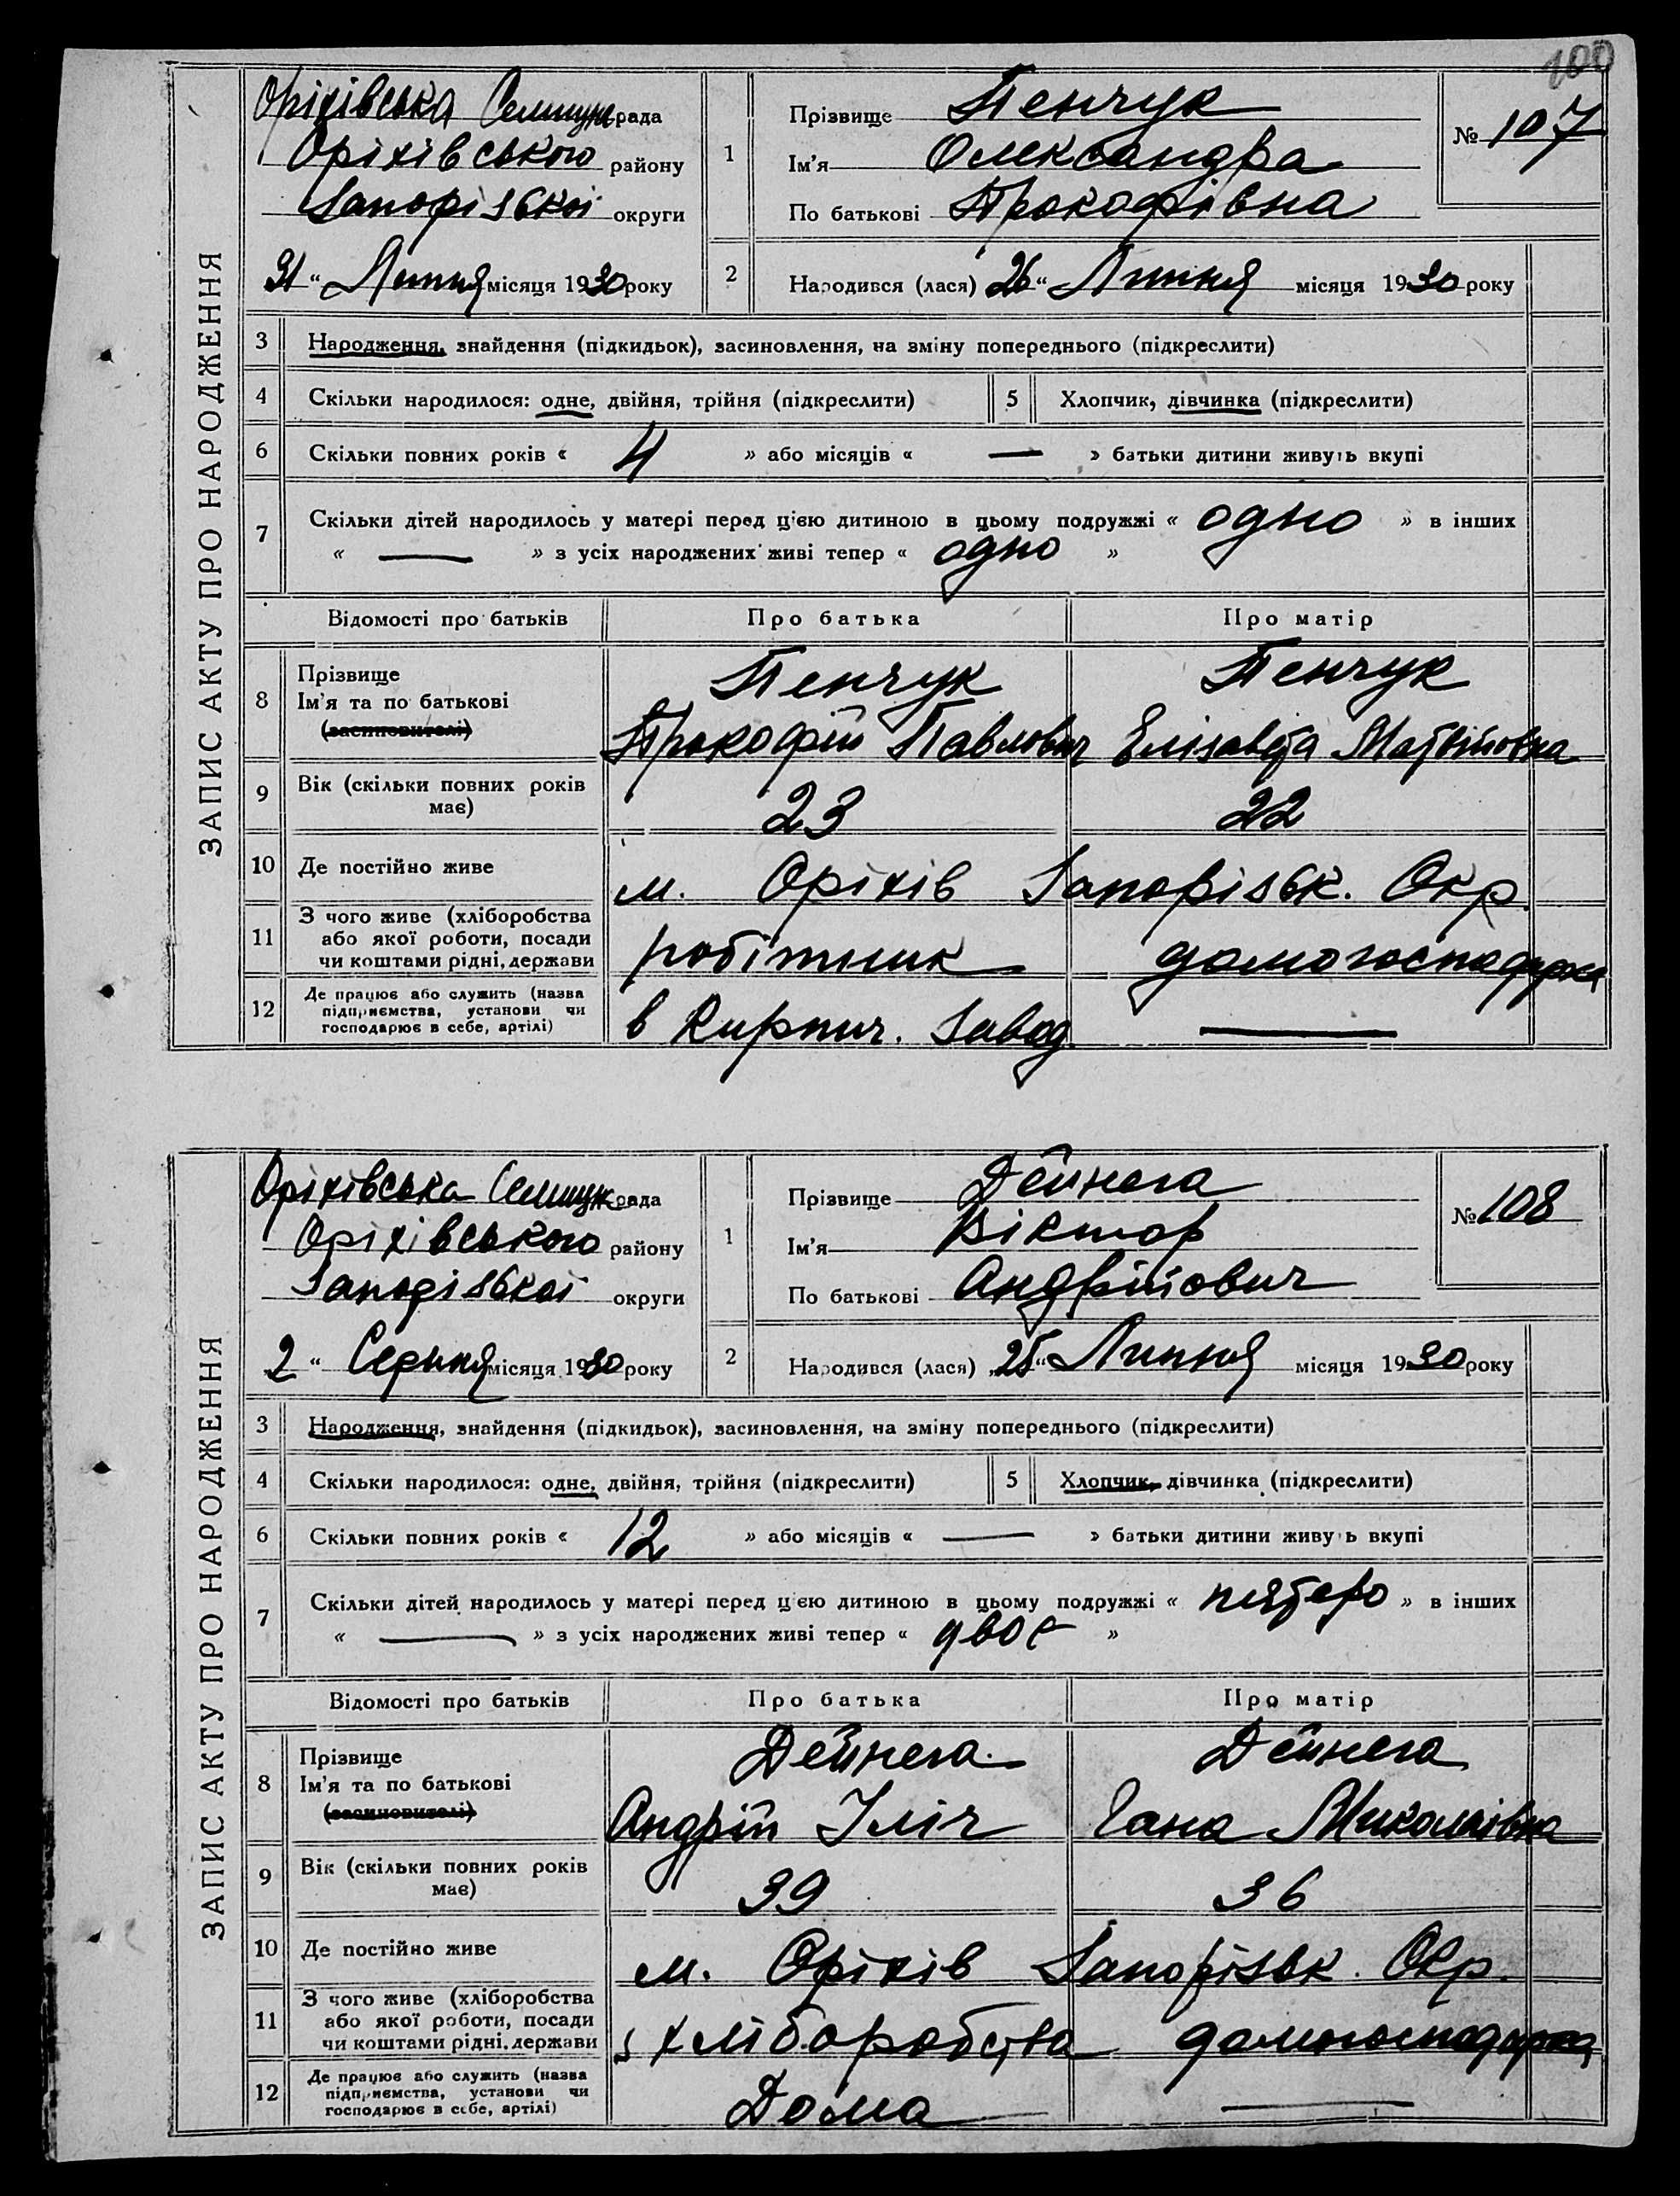 100
ЗАПИС АКТУ ПРО НАРОДЖЕННЯ
Оріхівська Селищн рада
Оріхівського району
Запорізької округи
31 “ Липня місяця 1930 року
1
Прізвище Пенчук
Ім'я Олександра
По батькові Прокофівна
№ 107
2 Народився (лася) 26 “ Липня місяця 1930 року
3 Народження, знайдення (підкидьок), засиновлення, на зміну попереднього (підкреслити)
4 Скільки народилося: одне, двійня, трійня (підкреслити) 5 Хлопчик, дівчинка (підкреслити)
6 Скільки повних років « 4 » або місяців « — » батьки дитини живуть вкупі
7 Скільки дітей народилось у матері перед цією дитиною в цьому подружжі « одно » в інших
« — » з усіх народжених живі тепер « одно »
Відомості про батьків Про батька Про матір
8 Прізвище Пенчук Пенчук
Ім'я та по батькові
(засиновителі) Прокофій Павлович Елізавета Матвійовна
9 Вік (скільки повних років має) 23 22
10 Де постійно живе м. Оріхів Запорізьк. Окр.
11 З чого живе (хліборобства
або якої роботи, посади
чи коштами рідні, держави робітник домогосподарка
12 Де працює або служить (назва
підприємства, установи чи
господарює в себе, артілі) в Кирпич. Завод. —
ЗАПИС АКТУ ПРО НАРОДЖЕННЯ
Оріхівська Селищн рада
Оріхівського району
Запорізької округи
2 “ Серпня місяця 1930 року
1
Прізвище Дейнега
Ім'я Віктор
По батькові Андрійович
№ 108
2 Народився (лася) „25 “ Липня місяця 1930 року
3 Народження, знайдення (підкидьок), засиновлення, на зміну попереднього (підкреслити)
4 Скільки народилося: одне, двійня, трійня (підкреслити) 5 Хлопчик, дівчинка (підкреслити)
6 Скільки повних років « 12 » або місяців « — » батьки дитини живуть вкупі
7 Скільки дітей народилось у матері перед цією дитиною в цьому подружжі « пятеро » в інших
« — » з усіх народжених живі тепер « двоє »
Відомості про батьків Про батька Про матір
8 Прізвище Дейнега Дейнега
Ім'я та по батькові
(засиновителі) Андрій Іліч Гана Миколаівна
9 Вік (скільки повних років має) 39 36
10 Де постійно живе м. Оріхів Запорізьк. Окр.
11 З чого живе (хліборобства
або якої роботи, посади
чи коштами рідні, держави з хліборобства домогосподарка
12 Де працює або служить (назва
підприємства, установи чи
господарює в себе, артілі) Дома —